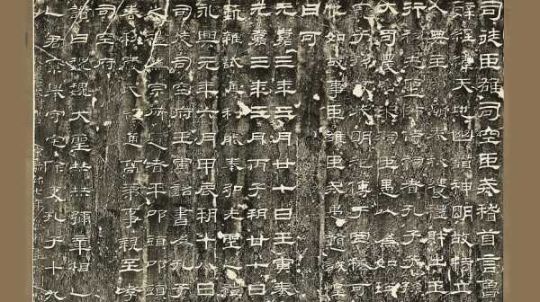 司徒臣雄司空臣戒稽首言魯
辭經緯天地幽讚神明故特立
人典主守廟春秋饗禮財出王
行祠先聖師侍祠者孔子子孫
大司農給米祠臣愚以為如瑛
恭明祀傳于罔極可許
他如故事臣雄臣戒愚戇誠惶
曰可
元嘉三年三月廿七日壬寅奏
元嘉三年三月丙子朔廿七日
雜試通利能奉弘先聖之禮
永興元年六月甲辰朔十八日
司徒司空府壬寅詔書為孔子
宗所歸者平叩頭叩頭
春秋嚴氏經通高第事親至孝
司空府
讚曰巍巍大聖赫赫彌章相乙
君察舉守宅除吏孔子十九